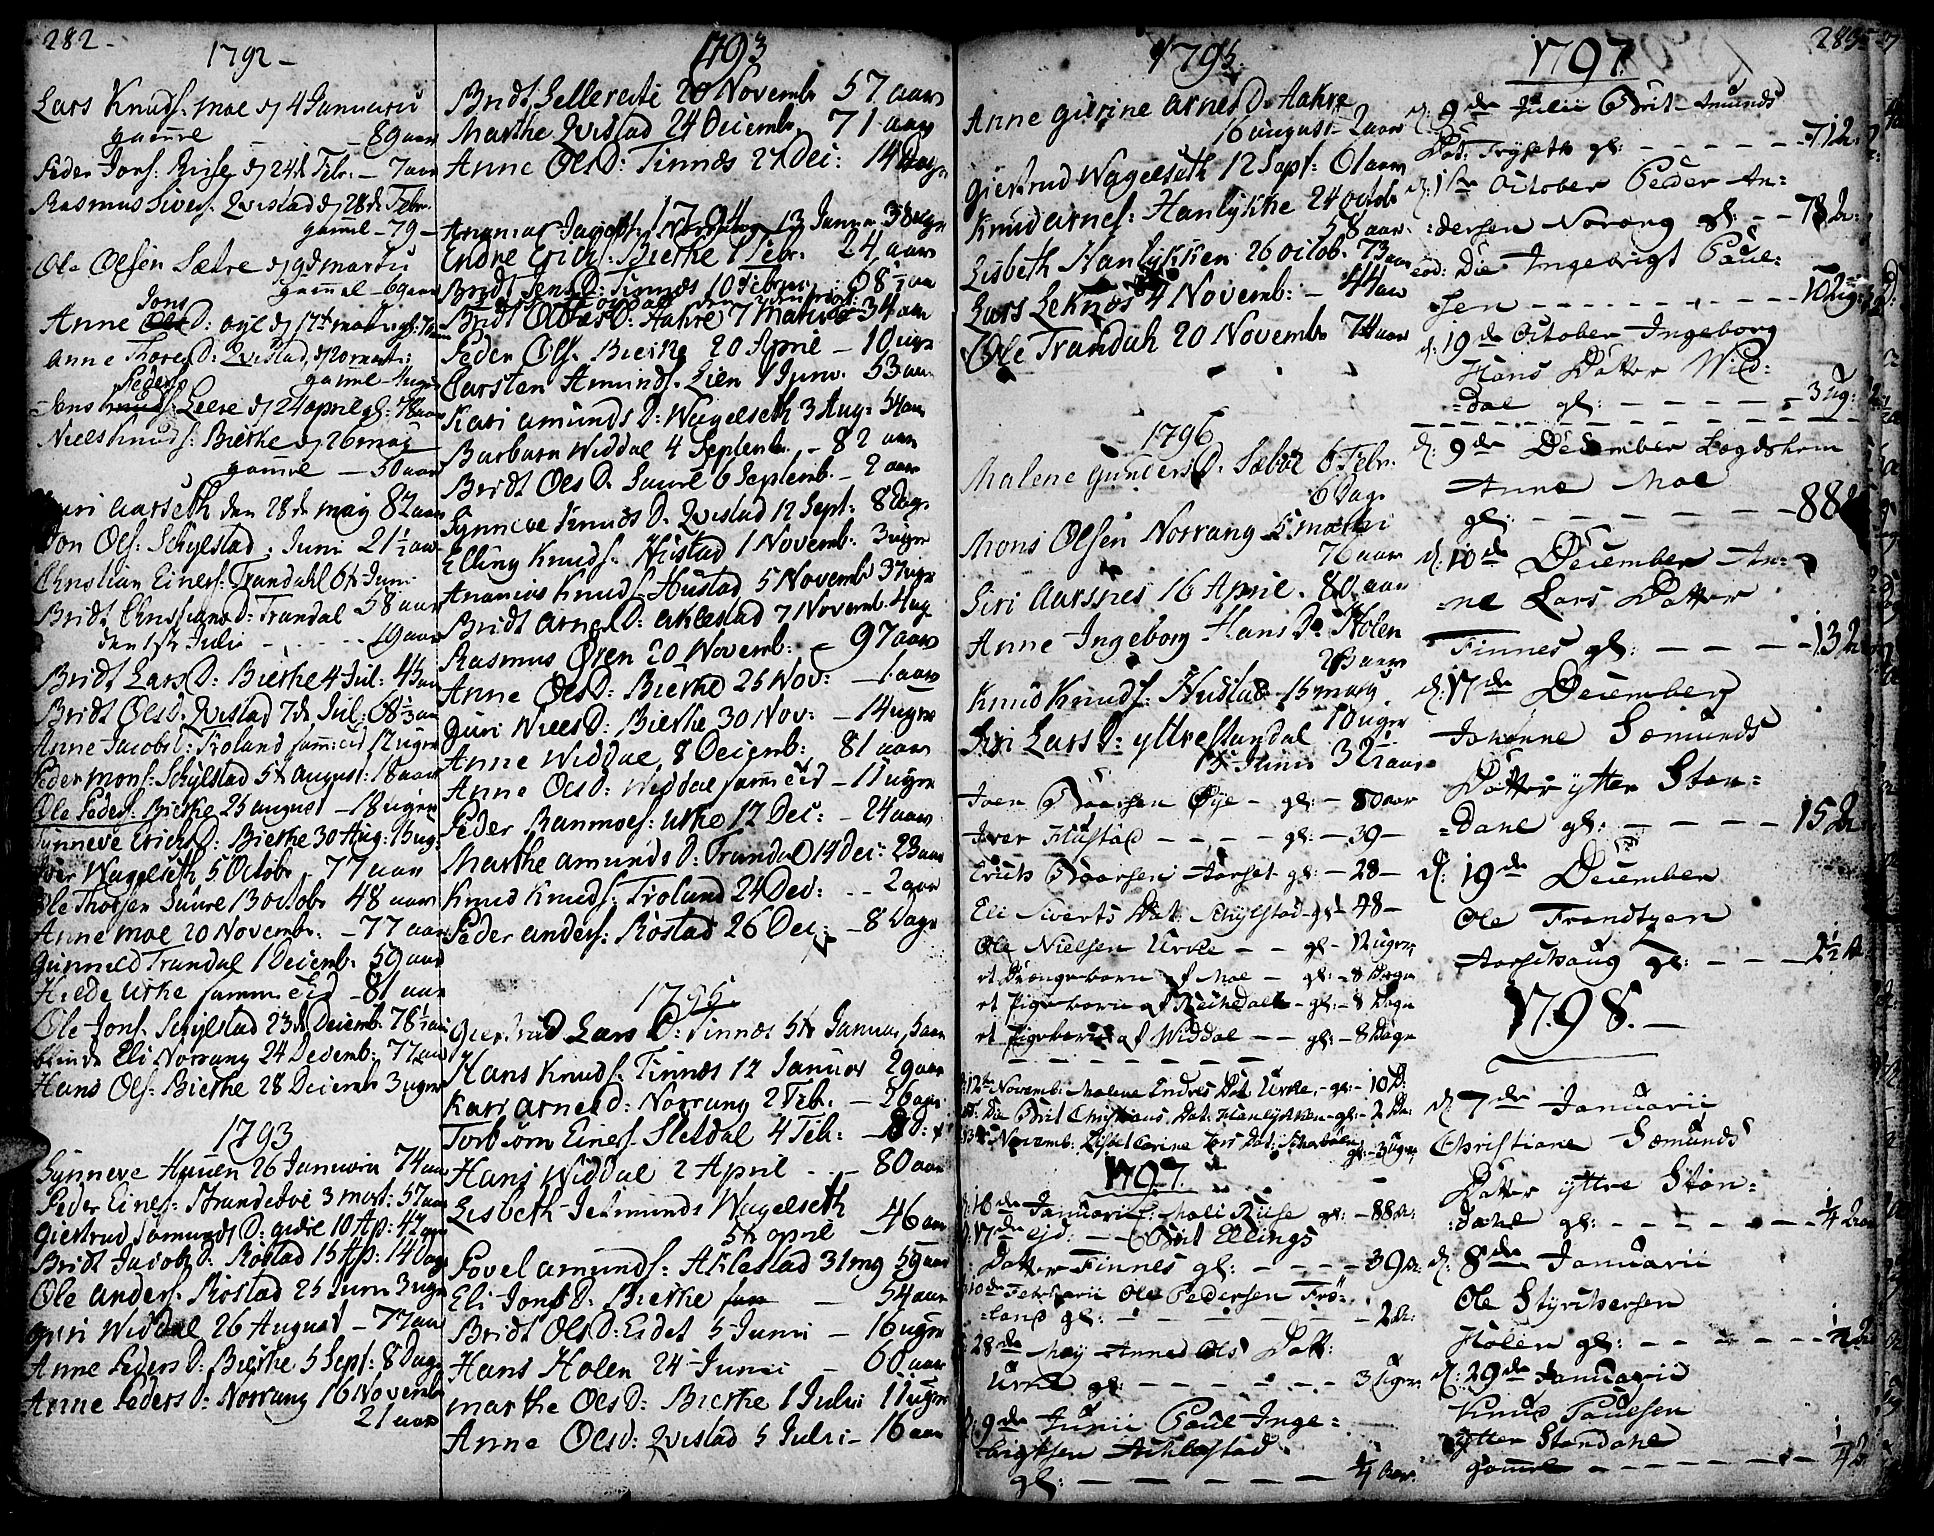 282
1792
Lars Knuds: moe d 4 Januarii
gamle 89 aar
Peder Jons: Riise d 24de Febr. 7 aar
Rasmus Siver: Qvistad d 28de Febr.
gaml 79
Ole Olsen Sætre d 9d martii
gammel 69 aar
Jons
Anne D: d 17de
Anne Thores D: Qvistad d 20 mart:
gamle 4 ugr
Peders
Jens Leere d 24 april gl: 78 aar
Niels Knuds: Bierke d 26 maj
gamle 50 aar
Guri Aarseth den 28de maj 82 aar
Jon Ols: Schylstad Juni 21½ aar
Christian Einers: Trandahl 6te Juni
58 aar
Bridt Christians D: Trandal
den 1ste Julii 19 aar
Bridt Lars D: Bierke 4 Jul: 43 aar
Bridt Ols D: Qvistad 7de Jul: 68½ aar
Anne Jacobs D: Roland samme eid 12 ugr
Peder Mons: Schylstad 5te August: 18 aar
Ole Peders: Bierke 25 august 18 uger
Synneve Erichs D: Bierke 30 Aug: 15 ug:
Iver Wagelseth 5 Octobr 77 aar
Ole Thorsen Saure 13 octobr 48 aar
Anne moe 20 Novembr: 77 aar
Gunnild Trandal 1 Decemb. 59 aar
Hlede Urke samme Eid 81 aar
Ole Jons: Schylstad 23de Decemb. 78½ aar
Eli Norrang 24 Decemb: 77 aar
Hans Ols: Bierke 28 Decemb 3 ugr
1793
Synneve Hauen 26 Januarii 74 aar
Peder Einers: Strandebøe 3 mart: 57 aar
Giertrud Samunds D: 10 Ap: 42 aar
Bridt Jacobs D: Røstad 15 Ap: 14 Dage
Ole anders: Røstad 25 Juni 3 ugr
Guri Widdal 26 August 77 aar
Anne Peders D: Bierke 5 Sept: 8 Dage
Anne Peders D: Norrang 16 Novembr
21 aar
1793
Bridt Sellereite 20 Novembr 57 aar
Marthe Qvistad 24 Decembr 71 aar
Anne Ols D: Finnes 27 Dec: 14 Dage
1794
Ananias Jacobs: Norrang 13 Januar 38 ugr
Endre Erichs: Bierke 1 Febr. 24 aar
Bridt Jens D: Finnes 10 Februar 68½ aar
Bridt D: Aakre 7 Martii 34 aar
Peder Ols. Bierke 20 April 10 ugr
Carsten Amunds. Lien 1 Juni 53 aar
Kari amunds D: Wagelseth 3 Aug: 54 aar
Barbara Widdal 4 Septemb. 82 aar
Bridt Ols D. Saure 6 Septemb. 2 aar
Synneve Knuds D. Qvistad 12 Sept: 8 Dage
Elling Knuds: Hustad 1 Novemb: 3 ugr
Ananias Knuds: Hustad 5 Novembr 37 ugr
Bridt Arnes D: aklestad 7 Novemb. 4 ug
Rasmus Øren 20 Novemb: 97 aar
Anne Ols D: Bierke 25 Nov: 1 aar
Guri Niels D: Bierke 30 Nov: 14 ugr
Anne Widdal 8 Decemb: 81 aar
Anne Ols D: Widdal samme eid 11 ugr
Peder Ranmoes: Urke 12 Dec: 24 aar
Marthe amunds D: Trandal 14 Dec: 23 aar
Knud Knuds: Froland 24 Dec: 2 aar
Peder anders: Røstad 26 Dec: 8 Dage
1795
Giertrud Lars D: Finnes 5te Januar 5 aar
Hans Knuds: Finnes 12 Januar 29 aar
Kari Arnes D: Norrang 2 Feb. 26 aar
Torbiörn Einers. Sletdal 4 Feb: 8 D:
Hans Widdal 2 April 80 aar
Lisbeth Jetmunds Wagelseth
5te april 46 aar
Povel amunds: Aklestad 31 maj 59 aar
Eli Jons D: Bierke 54 aar
Bridt Ols D: Eidet 5 Juni 16 ugr
Hans Holen 24 Juni 60 aar
marthe Ols D: Bierke 1 Julii 11 ugr
Anne Ols D: Qvistad 5 Julii 16 aar
1795
Anne Gurine Arnes D. Aakre
16 august 2 aar
Giertrud Wagelseth 12 Sept: 61 aar
Knud Arnes: Hanlykke 24 octob
58 aar
Lisbeth Hanlykken 26 octob. 73 aar
Lars Leknes 4 Novemb: 44 aar
Ole Trandal 20 Novembr 74 aar
1796
Malene Gunders D. Sæbøe 6 Febr.
6 Dage
Mons Olsen Norrang 5 martii
76 aar
Siri Aarsnes 16 April. 80 aar
Anne Ingeborg Hans D: Holen
23 aar
Knud Knuds: Hustad 15 maij
10 ugr
Siri Lars D: yttre Standal
15 Junii 32½ aar
Joen Baarsen Øye gl: 80 aar
Iver Hustad gl: 39
Erich Baarsen Aarset gl: 28
Eli Siverts Dat: Schylstad gl: 48
Ole Nielsen Urke gl: 12 ugr
et Drengebarn af Moe gl: 8 Dage
et Pigebarn af gl: 8 Dage
et Pigebarn af Widdal gl: 8 Dage
12te Novemb: Malene Endres Dat: Urke gl: 10 D:
Die Brit Christians Dat: Hanlykken gl: 2 Da:
Novemb: Lisbet Carine Jons Dat:
gl: 3 uger
1797
16de Januarii Mali Riise gl: 88 Ar:
17de ejd: Brit Ellings
Datter Finnes gl: 39 Ar:
10de Februarii Ole Pedersen Frö-
land gl: 2 Ar:
28de May Anne Ols Datt:
Urke gl: 3 Uger
9de Junii Poul Inge-
brigtsen Acklestad
gl: ¼ Aar
283
1797
d: 9de Julii Brit Amunds
Dat: Fryseth gl: 71 Ar:
d: 1ste October Peder An-
dersen Norang gl: 78 Ar:
eod: Die Ingebrigt Poul-
sen 10 Ug:
d: 19de October Ingeborg
Hans Datter Wid-
dal gl: 3 Ug:
d: 9de December Lægdslem
Anne Moe
gl: 88
d: 10de December An-
ne Lars Datter
Finnes gl: 13 Ar
d: 17de December
Johanne Sæmunds
Datter ytter Stan-
dahl gl: 15 Ar:
d: 19de December
Ole Frandtzen
Aarschoug gl: 2½ Ar
1798.
d: 7de Januarii
Christiane Sæmunds
Datter yttre Stan-
dahl gl: ¼ Ar
d: 8de Januarii
Ole Styrchersen
Holen gl: ½ Ar
d: 29de Januarii
Knud Poulsen
ytter Standahl
gammel ¼ Ar